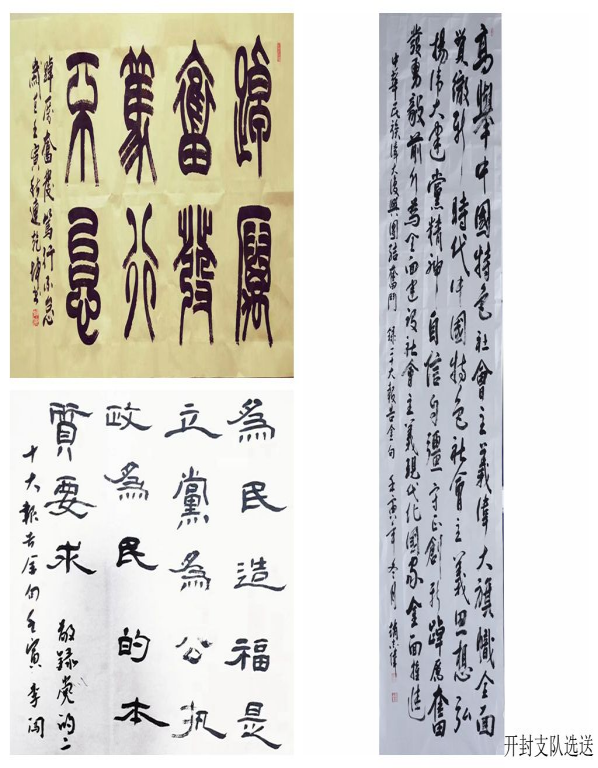 踔厲
奮發
篤行
不息
踔厲奮發篤行不息
壬寅
為民造福是
立黨為公执
政為民的本
質要求 敬録党的二
十大報告金句壬寅李闯
高舉中國特色社會主義偉大旗幟全面
貫徹新時代中國特色社會主義思想弘
揚偉大建黨精神自信自彊守正創新踔厲奮
發勇毅前行為全面建設社會主義現代化國家全面推進
中華民族偉大復興團結奮鬥 録二十大報告金句 壬寅年冬月
开封支队选送